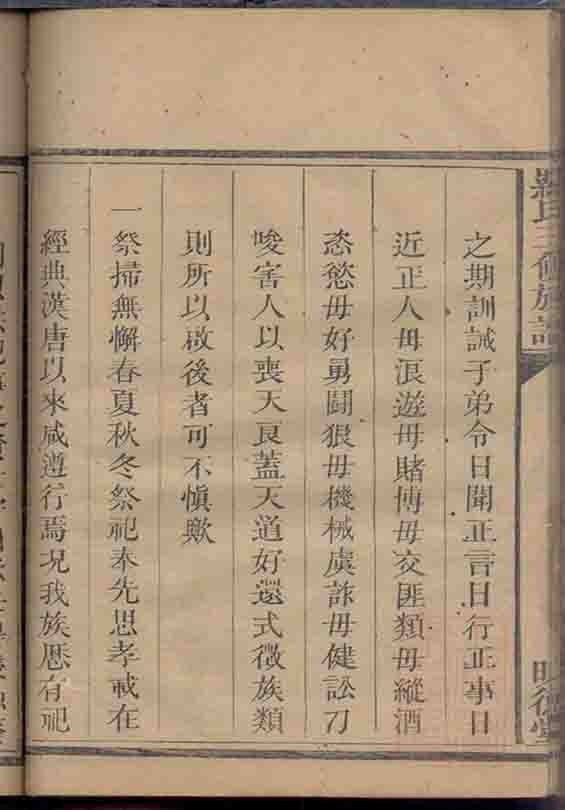 之期訓誡子弟令日聞正言日行正事日
近正人毋浪遊毋賭博毋交匪類毋縱酒
恣慾毋好勇鬪狠毋機械虞詐毋健訟刀
唆害人以喪天良蓋天道好還式微族類
則所以啟後者可不愼歟
一祭掃無懈春夏秋冬祭祀奉先思孝載在
經典漢唐以來咸遵行焉况我族厯有祀